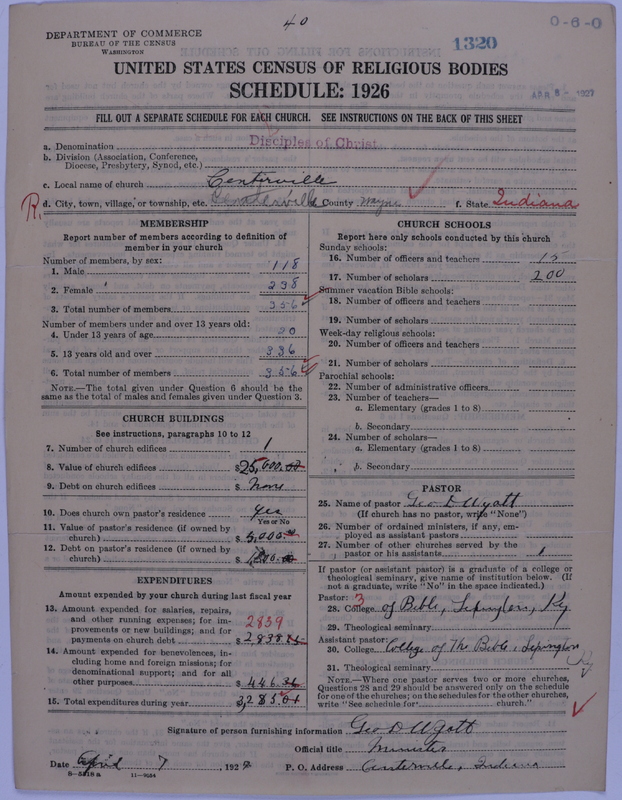 40
0-6-0
DEPARTMENT OF COMMERCE
BUREAU OF THE CENSUS
WASHINGTON
1320
UNITED STATES CENSUS OF RELIGIOUS BODIES
SCHEDULE: 1926
APR 8 - 1927
FILL OUT A SEPARATE SCHEDULE FOR EACH CHURCH. SEE INSTRUCTIONS ON THE BACK OF THIS SHEET
a. Denomination Disciples of Christ
b. Division (Association, Conference,
Diocese, Presbytery, Synod, etc.)
c. Local name of church Centerville
R. d. City, town, village, or township, etc. Centerville County Wayne f. State Indiana
MEMBERSHIP
Report number of members according to definition of
member in your church
Number of members, by sex:
1. Male 118
2. Female 238
3. Total number of members 356
Number of members under and over 13 years old:
4. Under 13 years of age 20
5. 13 years old and over 336
6. Total number of members 356
NOTE.—The total given under Question 6 should be the
same as the total of males and females given under Question 3.
CHURCH BUILDINGS
See instructions, paragraphs 10 to 12
7. Number of church edifices 1
8. Value of church edifices $25,000.00
9. Debt on church edifices $ None
10. Does church own pastor's residence Yes
Yes or No
11. Value of pastor's residence (if owned by
church) $5,000.
12. Debt on pastor's residence (if owned by
church) $
EXPENDITURES
Amount expended by your church during last fiscal year
13. Amount expended for salaries, repairs,
and other running expenses; for im-
provements or new buildings; and for 2839
payments on church debt $2838.
14. Amount expended for benevolences, in-
cluding home and foreign missions; for
denominational support; and for all
other purposes $446.
15. Total expenditures during year 3,285.
CHURCH SCHOOLS
Report here only schools conducted by this church
Sunday schools:
16. Number of officers and teachers 15
17. Number of scholars 200
Summer vacation Bible schools:
18. Number of officers and teachers
19. Number of scholars
Week-day religious schools:
20. Number of officers and teachers
21. Number of scholars
Parochial schools:
22. Number of administrative officers
23. Number of teachers—
a. Elementary (grades 1 to 8)
b. Secondary
24. Number of scholars—
a. Elementary (grades 1 to 8)
b. Secondary
PASTOR
25. Name of pastor Geo D Wyatt
(If church has no pastor, write "None")
26. Number of ordained ministers, if any, em-
ployed as assistant pastors
27. Number of other churches served by the
pastor or his assistants 1
If pastor (or assistant pastor) is a graduate of a college or
theological seminary, give name of institution below. (If
not a graduate, write "No" in the space indicated.)
Pastor: 3
28. College of Bible, Lexington, Ky
29. Theological seminary
Assistant pastor:
30. College College of The Bible, Lexington Ky
31. Theological seminary
NOTE.—Where one pastor serves two or more churches,
Questions 28 and 29 should be answered only on the schedule
for one of the churches; on the schedules for the other churches,
write "See schedule for church."
Signature of person furnishing information Geo D Wyatt
Official title Minister
Date April 7, 192 P. O. Address Centerville, Indiana
8-5318a 11-9034